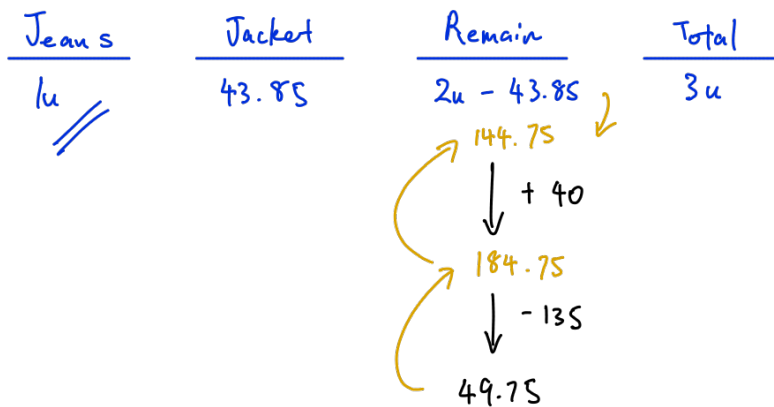 Jeans Jacket Remain Total
1u 43.85 2u - 43.85 3u
144.75
+ 40
184.75
- 135
49.75